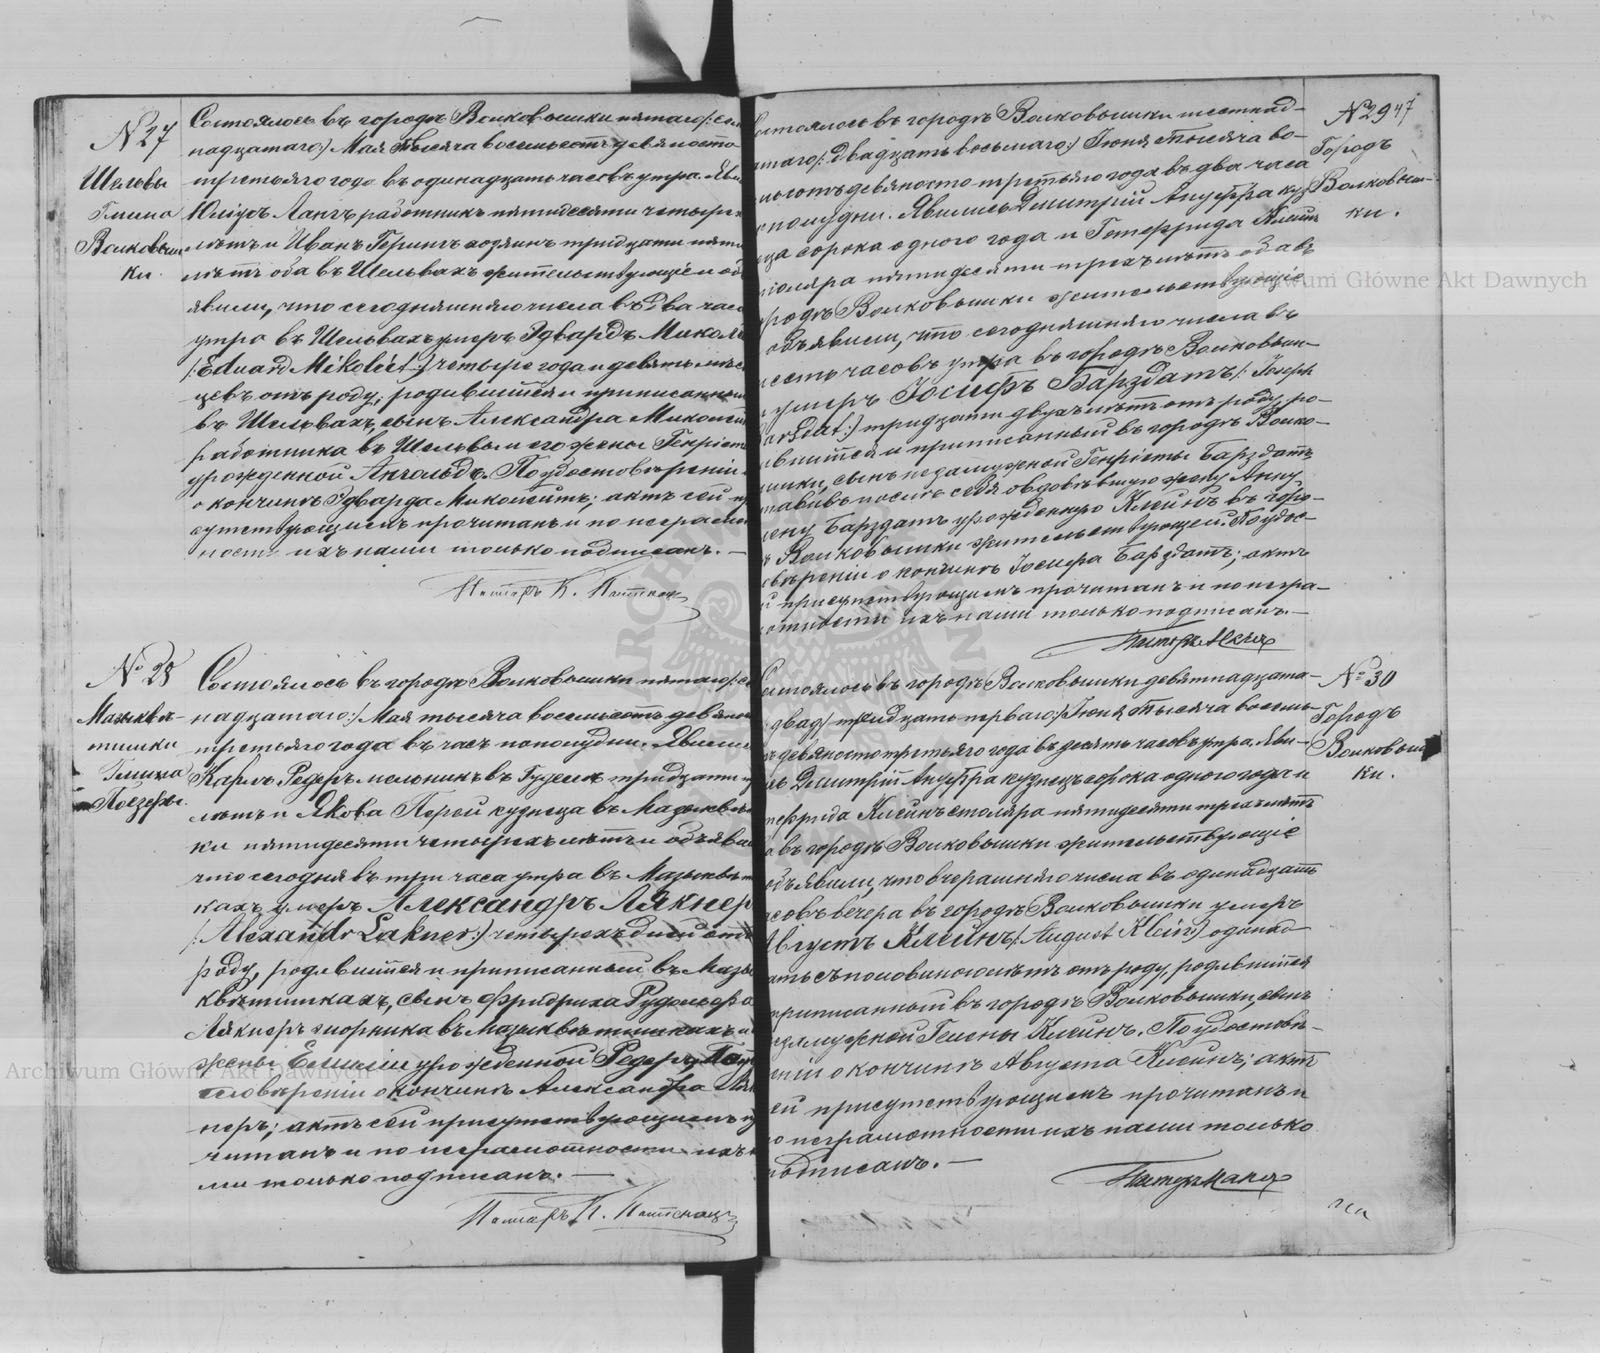 N 27
Шельвы
Гмина
Волковыш
ки.
Состоялось въ городѣ Волковышки пятаго /: сем
надцатаго :/ Мая тысяча восемьсотъ девяносто
третьяго года въ одинадцать часовъ утра. Яви
Юліусъ Лангъ работникъ пятидесяти четырех
лѣтъ и Иванъ Герингъ хозяинъ тридцати пяти
лѣтъ оба въ Шельвахъ жительствующіе и об
явили, что сегодняшняго числа въ два час
утра въ Шельвахъ умеръ Эдвардъ Миколе
/: Eduard Mikoleit :/ четыре года и девять мѣс
цевъ отъ роду, родившійся и приписанный
въ Шельвахъ, сынъ Александра Миколей
работника въ Шельвы и его жены Генріет
урожденной Ангольдъ. По удостовѣреніи
о кончинѣ Эдварда Миколейтъ; актъ сей п
сутствующимъ прочитанъ и по неграмот
ности ихъ нами только подписанъ. —
Пасторъ К.
№ 28
Мазыквѣ-
тишки
Гмина
Поезеры.
Состоялось въ городѣ Волковышки пятаго /: се
надцатаго :/ Мая тысяча восемьсотъ девяно
третьяго года въ часъ пополудни. Явились
Карлъ Редеръ мельникъ въ тридцати
лѣтъ и Якова кузнеца въ Мазыквѣ
ки пятидесяти четырехъ лѣтъ и объяви
что сегодня въ три часа утра въ Мазыквѣт
кахъ умеръ Александръ Лякнер
/: Alexandr Lakner :/ четырехъ дней отъ
роду, родившійся и приписанный въ Мазы
квѣтишкахъ, сынъ Фридриха Рудольфа
Лякнеръ въ Мазыквѣтишкахъ и
жены Емиліи урожденной Редеръ. По у
стовѣреніи о кончинѣ Александра Ляк
неръ; актъ сей присутствующимъ п
читанъ и по неграмотности ихъ
ми только подписанъ. —
Пасторъ К.
N 29
47
Городъ
Волковыш-
ки.
остоялось въ городѣ Волковышки шестнад-
атаго /: двадцать восьмаго :/ Іюня тысяча во-
мьсотъ девяносто третьяго года въ два часа
пополудни. Явились Дмитрій Ануфра куз
ца сорока одного года и Готфрида Клейнъ
толяра пятидесяти трехъ лѣтъ оба въ
ородѣ Волковышки жительствующіе
объявили, что сегодняшняго числа въ
есть часовъ утра въ городѣ Волковыш-
умеръ Іосифъ Барздатъ /: Joseph
arsdat :/ тридцати двухъ лѣтъ отъ роду, ро-
ившійся и приписанный въ городѣ Волко-
ышки, сынъ незамужной Генріеты Барздатъ
тавивъ послѣ себя овдовѣвшую жену Анну,
ену Барздатъ урожденную Клейнъ въ горо-
ѣ Волковышки жительствующей. По удос-
овѣреніи о кончинѣ Іосифа Барздатъ; актъ
й присутствующимъ прочитанъ и по негра-
отности ихъ нами только подписанъ. —
Пасторъ
№ 30
Городъ
Волковыш
ки.
остоялось въ городѣ Волковышки девятнадцата-
двад/ тридцать перваго :/ Іюня тысяча восемь
ъ девяносто третьяго года въ десять часовъ утра. Яви-
сь Дмитрій Ануфра кузнецъ сорока одного года и
тфрида Клейнъ столяра пятидесяти трехъ лѣтъ
а въ городѣ Волковышки жительствующіе
объявили, что вчерашняго числа въ одинадцать
асовъ вечера въ городѣ Волковышки умеръ
Августъ Клейнъ /: August Klein :/ одинад-
ать съ половиною лѣтъ отъ роду, родившійся
приписанный въ городѣ Волковышки, сынъ
езамужной Гелены Клейнъ. По удостовѣ-
еніи о кончинѣ Августа Клейнъ; актъ
ей присутствующимъ прочитанъ и
о неграмотности ихъ нами только
подписанъ. —
Пасторъ
Archiwum Główne Akt Dawnych
Archiwum Główne Akt Dawnych
Archiwum Główne Akt Dawnych
ARCHIWUM